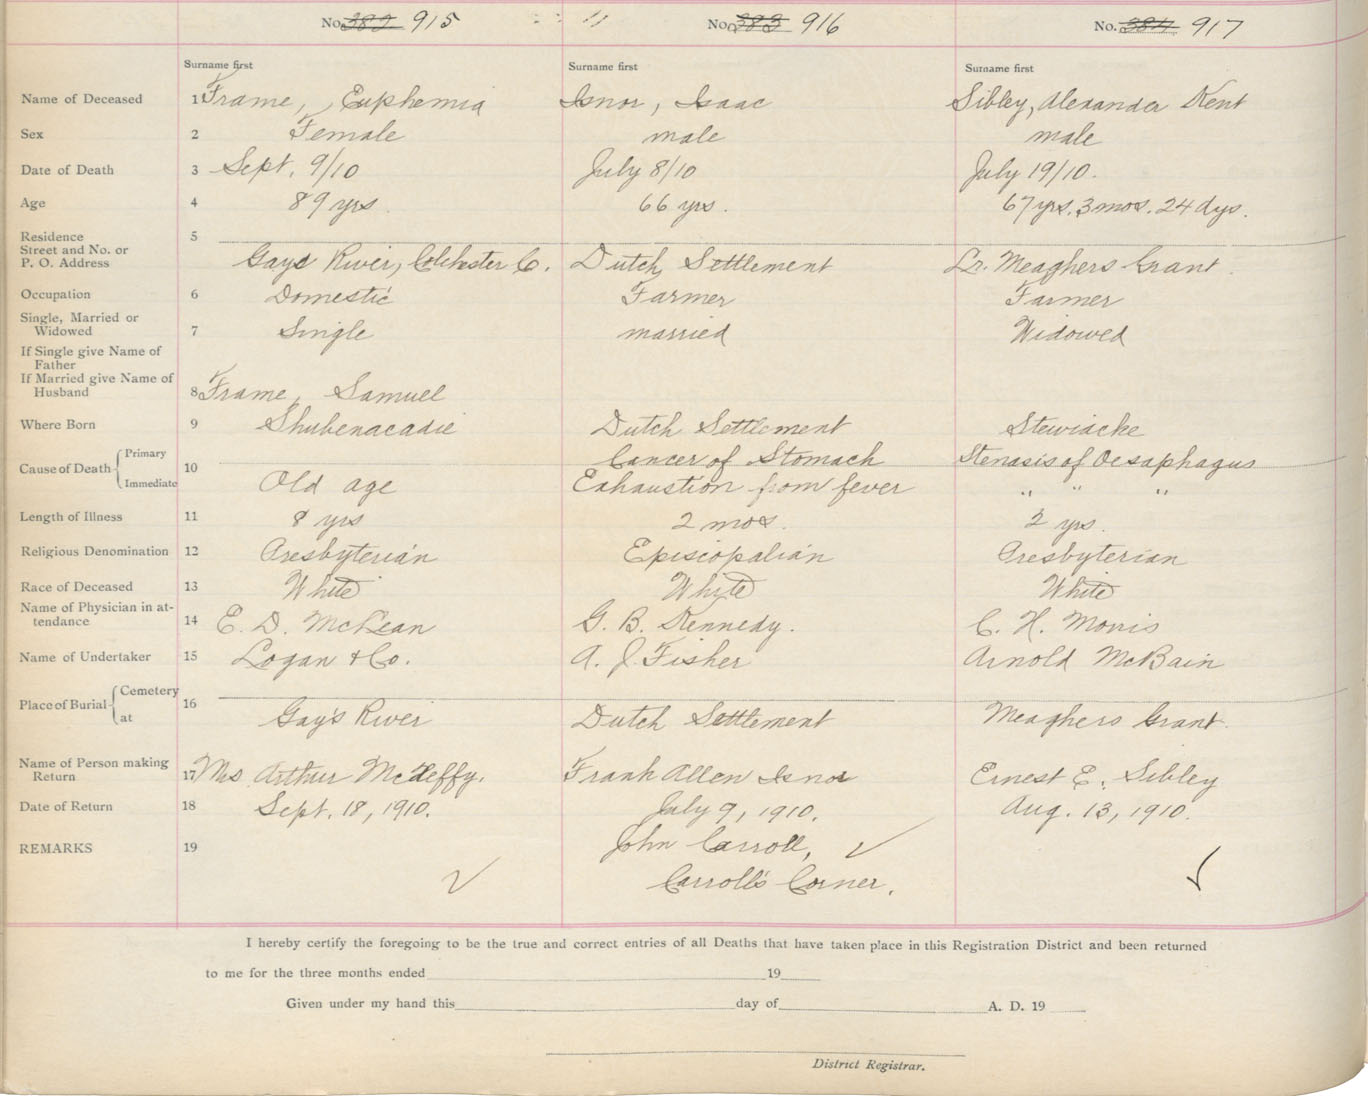 No. 382 915 No. 383 916 No. 384 917
Surname first Surname first Surname first
Name of Deceased 1 Frame, Euphemia Isnor, Isaac Sibley, Alexander Kent
Sex 2 Female male male
Date of Death 3 Sept. 9/10 July 8/10 July 19/10.
Age 4 89 yrs 66 yrs. 67 yrs. 3 mos. 24 dys.
Residence 5
Street and No. or
P. O. Address Gays River, Colchester C. Dutch Settlement Lr. Meaghers Grant.
Occupation 6 Domestic Farmer Farmer
Single, Married or
Widowed 7 Single married Widowed
If Single give Name of
Father
If Married give Name of
Husband 8 Frame, Samuel
Where Born 9 Shubenacadie Dutch Settlement Stewiacke
Cause of Death Primary 10 Cancer of Stomach Stenasis of Oesaphagus
Immediate Old age Exhaustion from fever " " "
Length of Illness 11 8 yrs 2 mos. 2 yrs.
Religious Denomination 12 Presbyterian Episcopalian Presbyterian
Race of Deceased 13 White White White
Name of Physician in at-
tendance 14 E. D. McLean G. B. Kennedy. C. H. Morris
Name of Undertaker 15 Logan & Co. A. J. Fisher Arnold McBain
Place of Burial Cemetery 16
at Gay's River Dutch Settlement Meaghers Grant.
Name of Person making
Return 17 Mrs Arthur McHeffy. Frank Allen Isnor Ernest E. Sibley
Date of Return 18 Sept. 18, 1910. July 9, 1910. Aug. 13, 1910.
REMARKS 19 John Carroll,
Carroll's Corner.
I hereby certify the foregoing to be the true and correct entries of all Deaths that have taken place in this Registration District and been returned
to me for the three months ended 19
Given under my hand this day of A. D. 19
District Registrar.